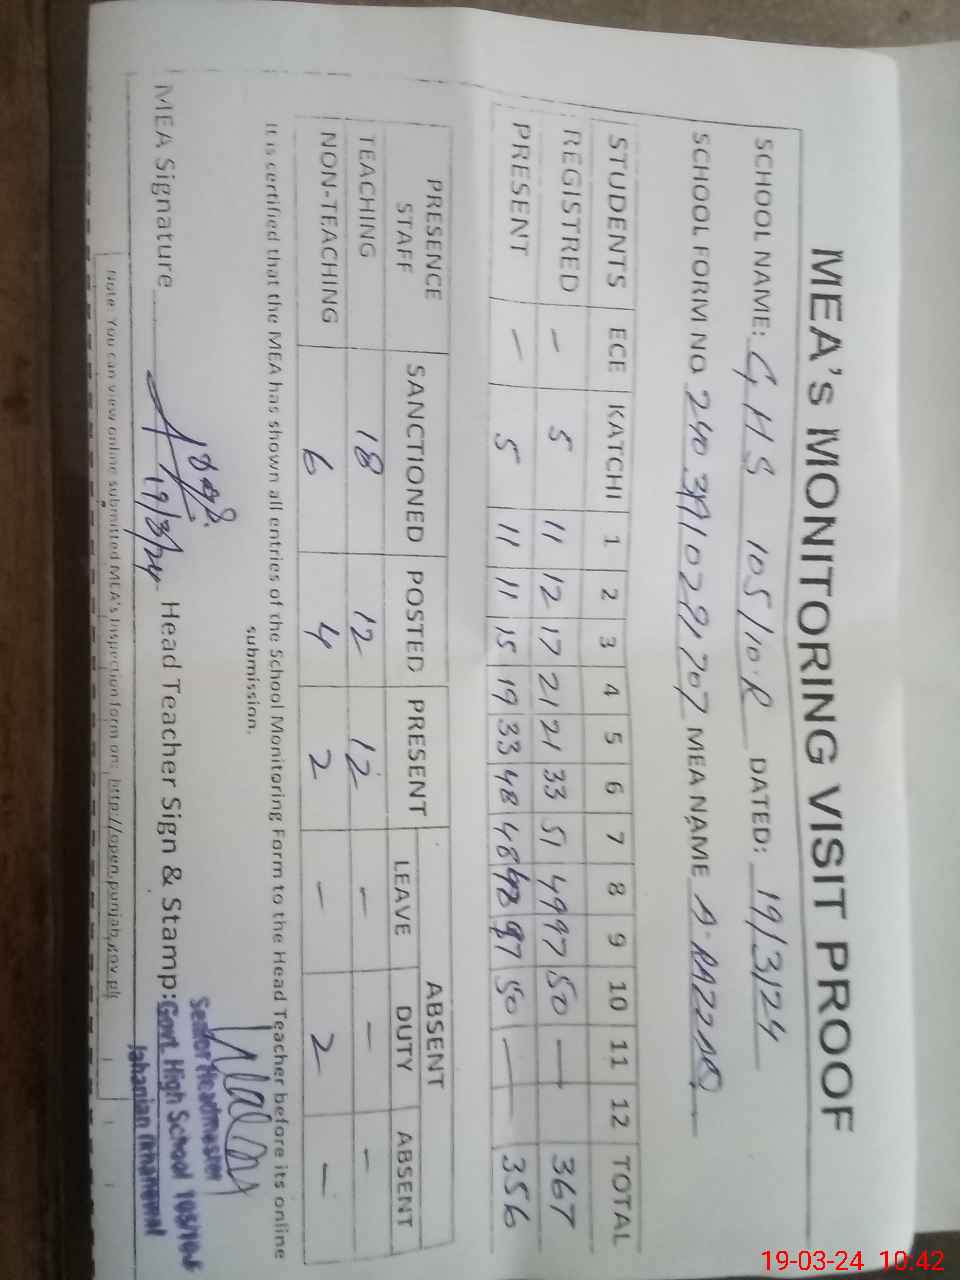 MEA'S MONITORING VISIT PROOF
SCHOOL NAME: G H S 105/10.R DATED: 19/3/24
SCHOOL FORM NO. MEA NAME A. RAZZAQ
STUDENTS ECE KATCHI 1 2 3 4 5 6 7 8 9 10 11 12 TOTAL
REGISTRED - 5 11 12 17 21 21 33 51 49 97 50 — 367
PRESENT - 5 11 11 15 19 33 48 48 97 50 — — 356
PRESENCE STAFF SANCTIONED POSTED PRESENT ABSENT
LEAVE DUTY ABSENT
TEACHING 18 12 12 - - -
NON-TEACHING 6 4 2 - 2 -
It is certified that the MEA has shown all entries of the School Monitoring Form to the Head Teacher before its online
submission.
MEA Signature 19/3/24 Head Teacher Sign & Stamp:
Senior Headmaster
Govt. High School 105/10-R
Jahanian (Khanewal
Note: You can view online submitted MEA's Inspection form on: http://open.punjab.gov.pk
19-03-24 10:42